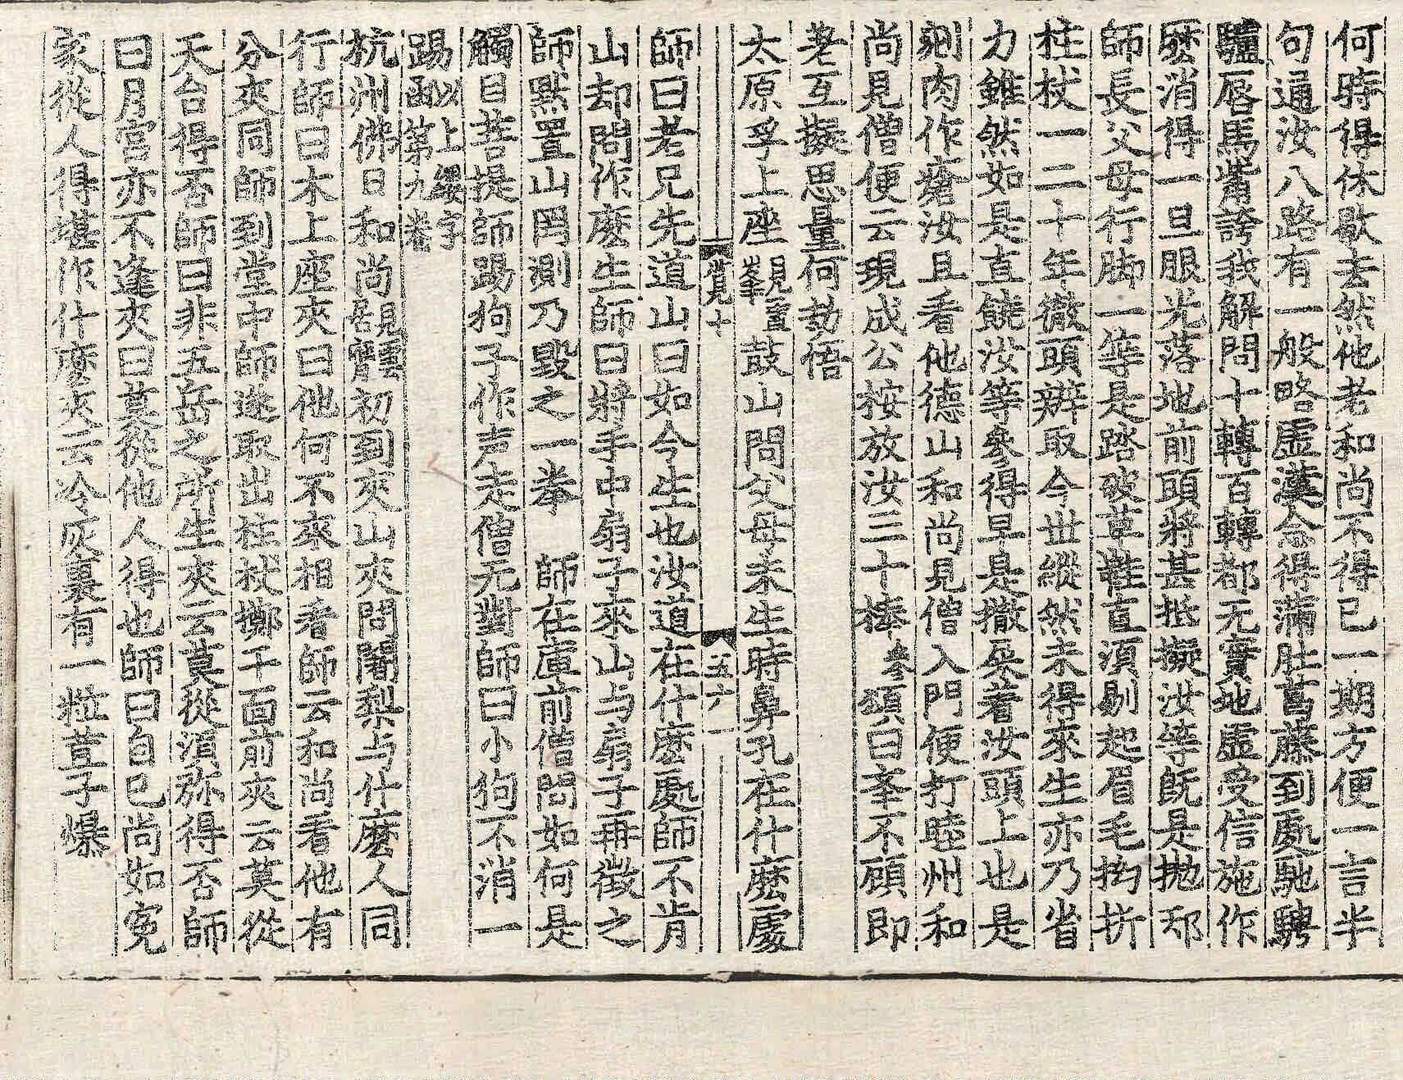 何時得休歇去然他老和尚不得已一期方便一言半
句通汝入路有一般略虛漢食得滿肚葛藤到處馳騁
驢唇馬觜誇我解問十轉百轉都无實地虛受信施作
麽消得一旦眼光落地前頭將甚抵擬汝等旣是抛却
師長父母行脚一等是踏破草鞋直須剔起眉毛拗折
柱杖一二十年徹頭辨取今世縱然未得來生亦乃省
力雖然如是直饒汝等叅得早是撒屎着汝頭上也是
剜肉作瘡汝且看他德山和尚見僧入門便打睦州和
尚見僧便云現成公桉放汝三十棒叅頌曰峯不顧即
差互擬思量何劫悟
太原孚上座見雪峯鼓山問父母未生時鼻孔在什麽處
覺十 五六
師曰老兄先道山曰如今生也汝道在什麽處師不肯
山却問作麽生師曰將手中扇子來山与扇子再徵之
師默置山罔測乃毀之一拳 師在庫前僧問如何是
觸目菩提師踢狗子作声走僧无對師曰小狗不消一
踢以上纓字函第九卷
杭州佛日和尚見雲居膺初到夾山夾問闍梨与什麽人同
行師曰木上座夾曰他何不來相看師云和尚看他有
分夾同師到堂中師遂取出柱杖擲于面前夾云莫從
天台得否師曰非五岳之所生夾云莫從須弥得否師
曰月宮亦不逢夾曰莫從他人得也師曰自己尚如寃
家從人得堪作什麽夾云冷灰裏有一粒荳子爆